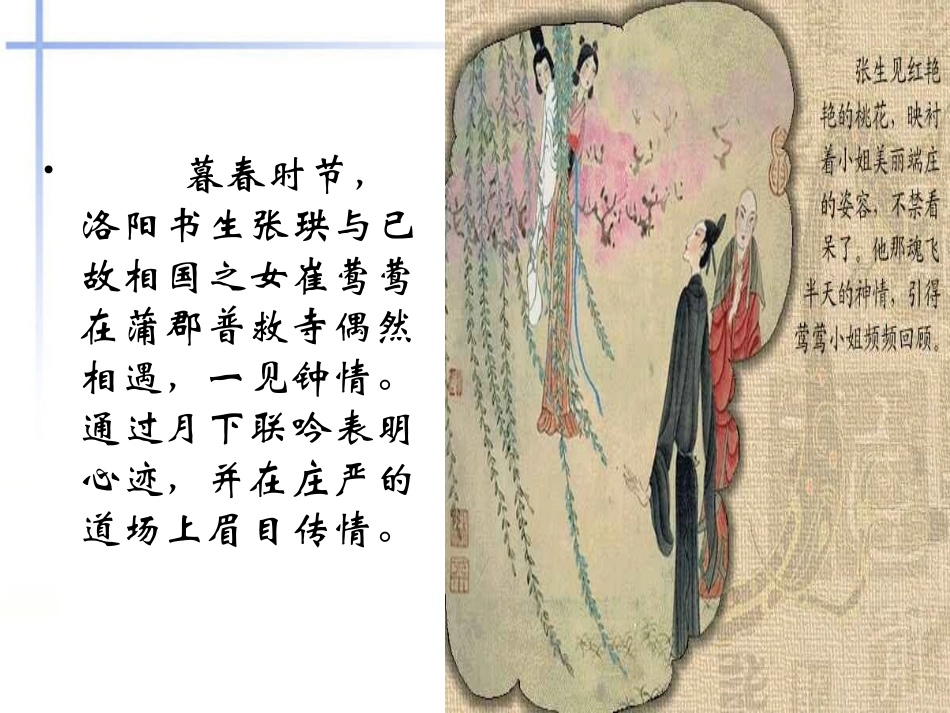 • 暮春时节，
洛阳书生张珙与已
故相国之女崔莺莺
在蒲郡普救寺偶然
相遇，一见钟情。
通过月下联吟表明
心迹，并在庄严的
道场上眉目传情。
张生见红艳
艳的桃花，映衬
着小姐美丽端庄
的姿容，不禁看
呆了。他那魂飞
半天的神情，引得
莺莺小姐频频回顾。